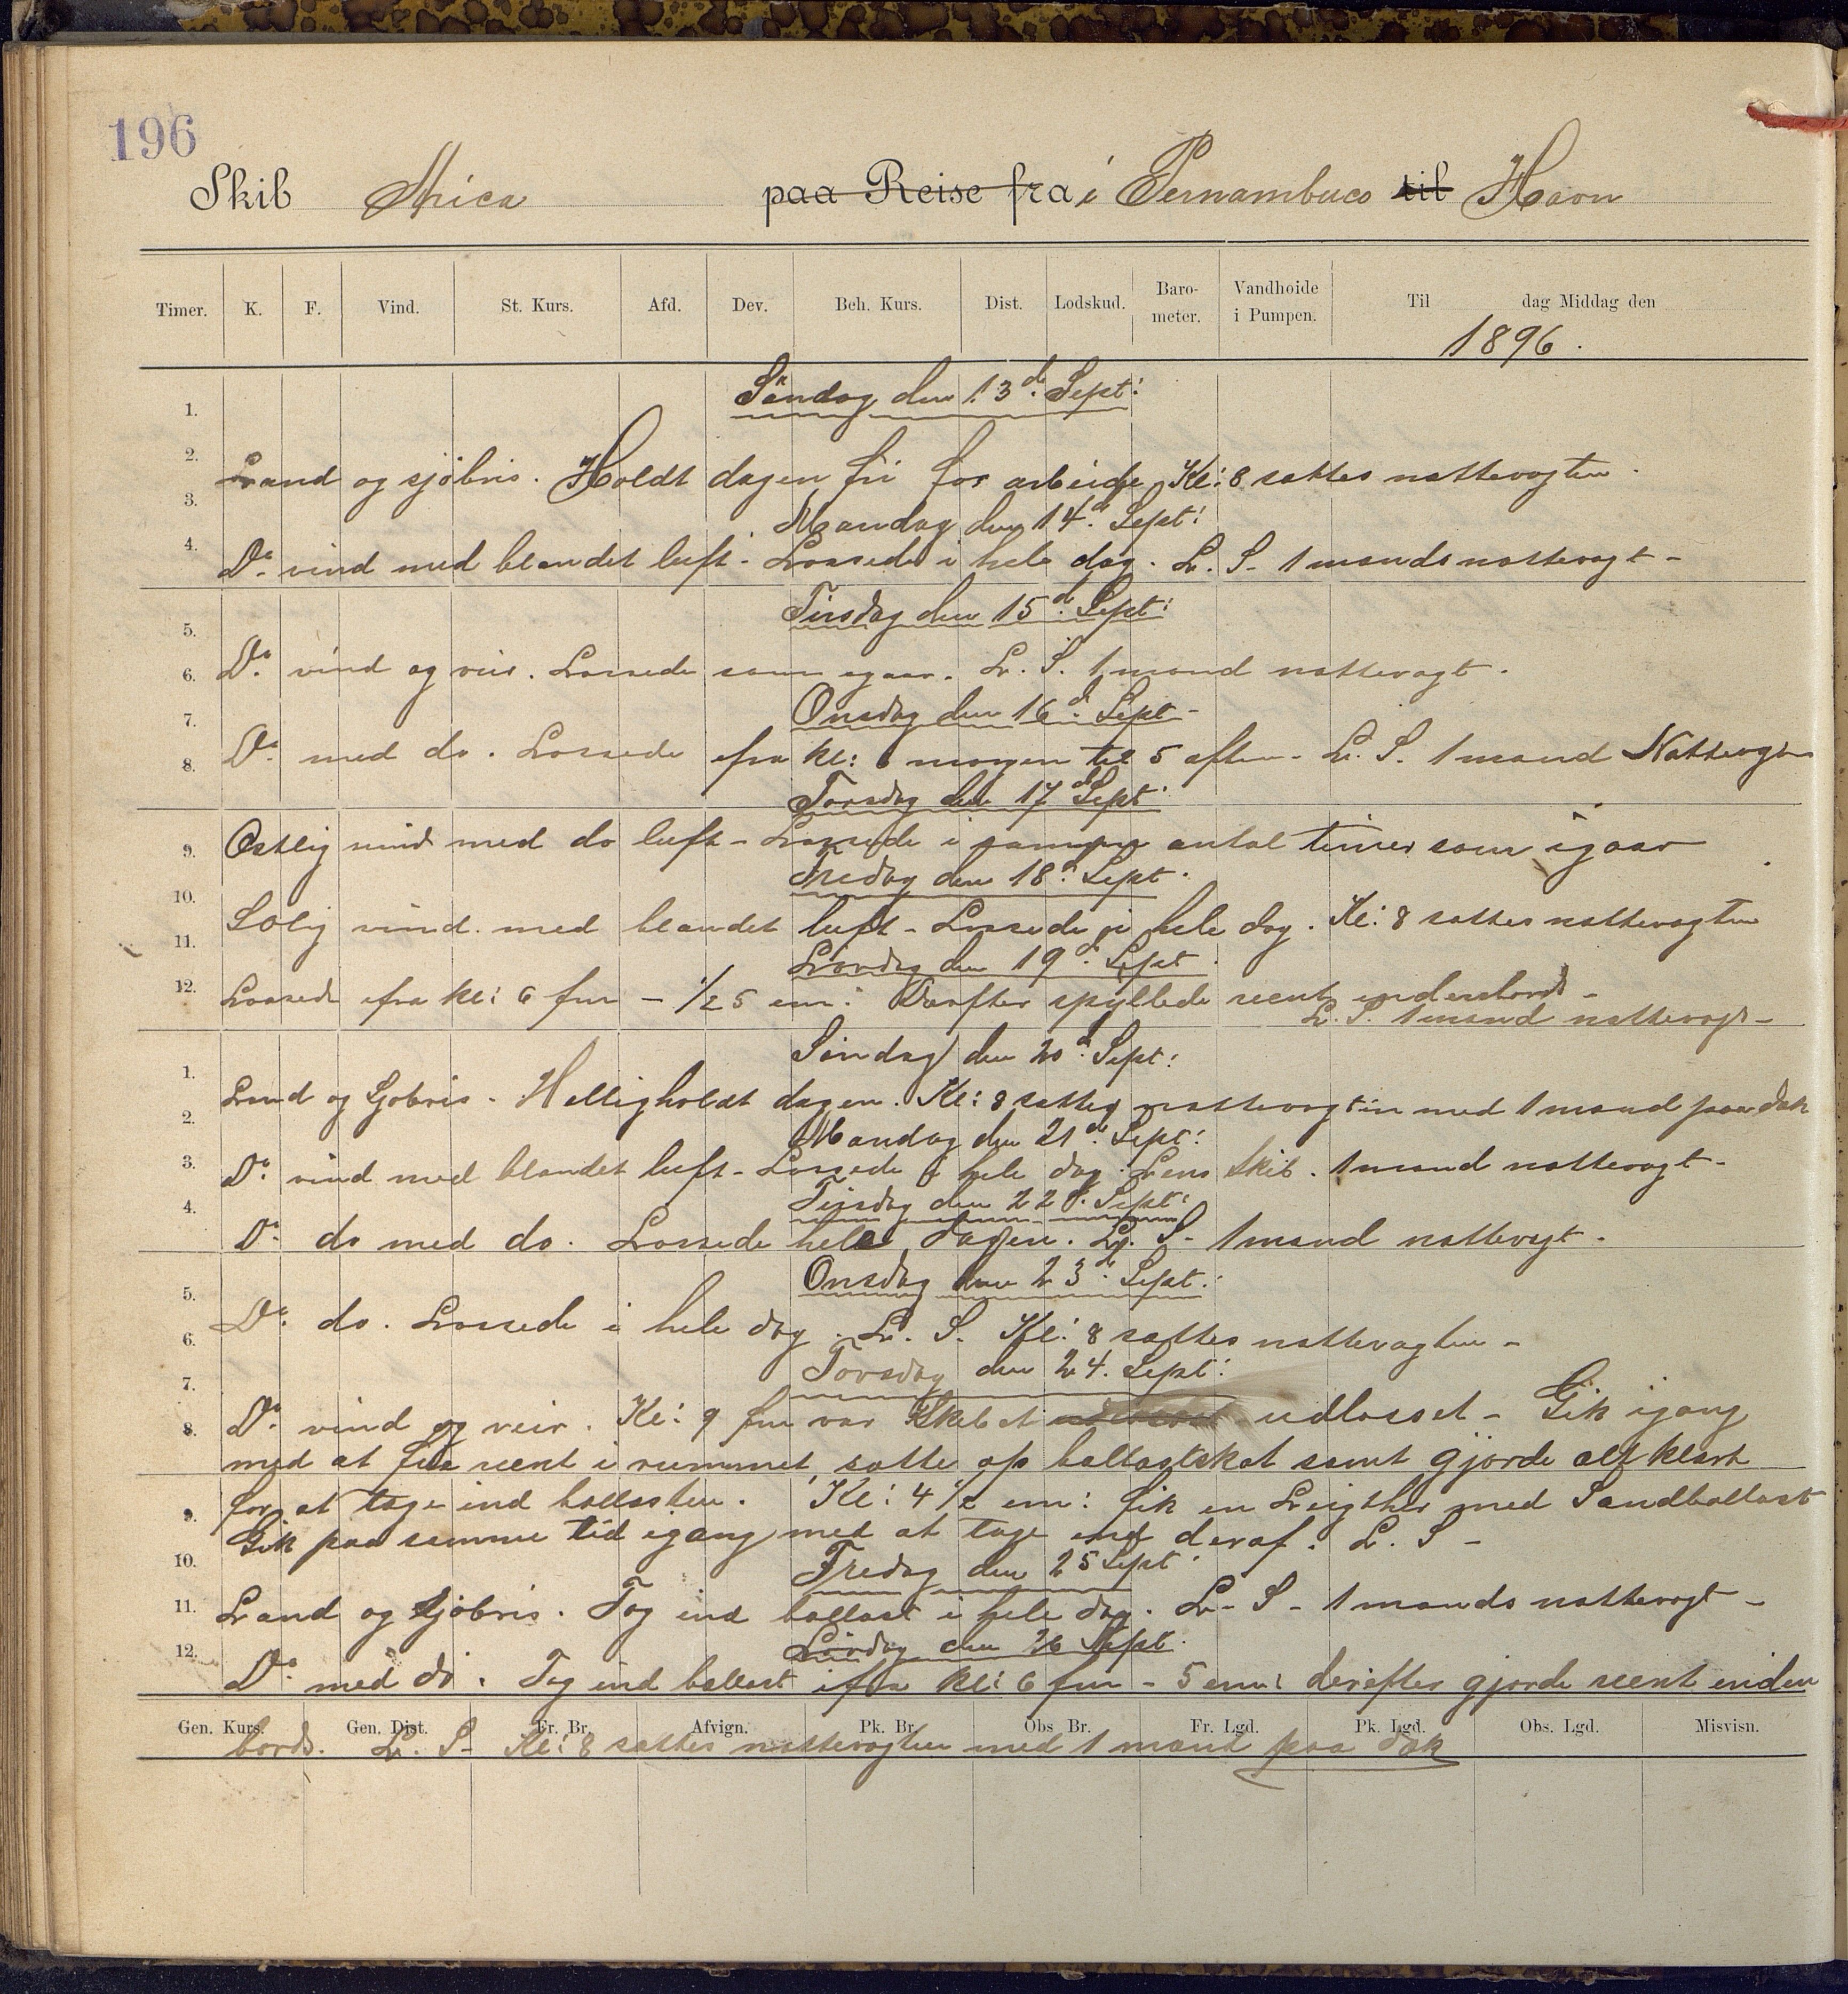 196
Skib Arica paa Reise fra i Pernambuco til Havn
Timer. K. F. Vind. St. Kurs. Afd. Dev. Beh. Kurs. Dist. Lodskud. Baro-meter. Vandhøide i Pumpen. Til dag Middag den
1896.
Söndag den 13d. Sept:
1.
2.
Land og sjöbris. Holdt dagen fri for arbeide Kl: 8 sattes nattevagten.
3.
Mandag den 14d. Sept:
4.
Do. vind med blandet luft - Lossede i hele dag. L. S. 1 mands nattevagt -
Tirsdag den 15d. Sept:
5.
6.
Do. vind og veir. Lossede som igaar. L. S. 1 mand nattevagt.
7.
Onsdag den 16d. Sept -
8.
Do. med do. Lossede fra kl: 6 morgen til 5 aften - L. S. 1 mand Nattevagten
Torsdag den 17d Sept
9.
Ostlig vind med do luft - Lossede i samme antal timer som igaar
Fredag den 18d. Sept.
10.
SOlig vind. med blandet luft - Lossede i hele dag. Kl: 8 sattes nattevagten
11.
Lørdag den 19d. Sept
12.
Lossede ifra kl: 6 fm - 1/2 5 em: Derefter spyllede reent indenbords -
L. S. 1 mand nattevagt -
Söndag den 20d. Sept:
1.
Land og Sjobris - Helligholdt dagen. Kl: 8 sattes nattevagten med 1 mand paa dæk
2.
Mandag den 21d. Sept:
3.
Do. vind med blandet luft - Lossede i hele dag. Lens Skib. 1 mand nattevagt -
4.
Tirsdag den 22d. Sept:
Do. do med do. Lossede hele dagen. L. S - 1 mand nattevagt.
Onsdag den 23d. Sept:
5.
Do. do. Lossede i hele dag. L. S. Kl: 8 sattes nattevagten -
6.
Torsdag den 24. Sept:
7.
8.
Do. vind og veir. Kl: 9 fm var Skibet udlosset - Gik igang
med at fiie reent i rummet, satte op ballastskot samt gjorde alt klart
9.
for at tage ind ballasten. Kl: 4 1/2 em: fik en Leigther med Sandballast
Gik paa samme tid igang med at tage ind deraf. L. S -
10.
Fredag den 25 Sept
11.
Land og Sjöbris. Tog ind ballast i hele dag. L - S - 1 mands nattevagt -
Lördag den 26 Sept.
12.
Do. med do. Tog ind ballast ifra kl: 6 fm - 5 em: derefter gjorde reent inden
Gen. Kurs. Gen. Dist. Fr. Br. Afvign. Pk. Br. Obs Br. Fr. Lgd. Pk. Lgd. Obs. Lgd. Misvisn.
bords. L. S - Kl: 8 sattes nattevagten med 1 mand paa dæk